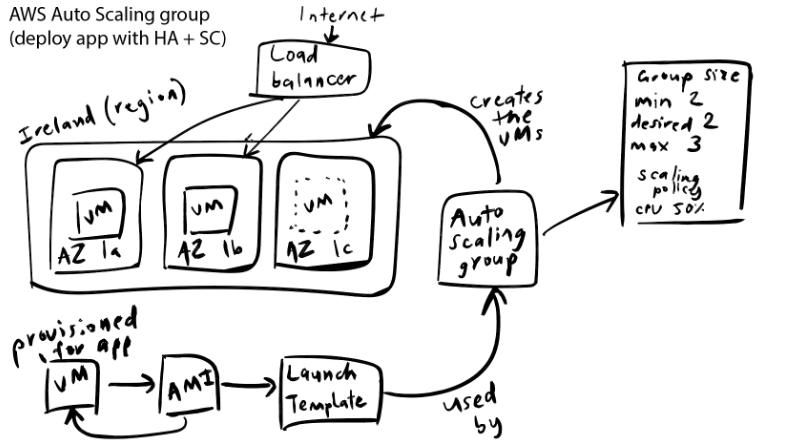 AWS Auto Scaling group
(deploy app with HA + SC)
Internet
Load
balancer
Ireland (region)
VM
AZ 1a
VM
AZ 1b
VM
AZ 1c
creates
the
VMs
Auto
scaling
group
Group size
min 2
desired 2
max 3
scaling
policy
CPU 50%
provisioned
for app
VM
AMI
Launch
Template
used
by